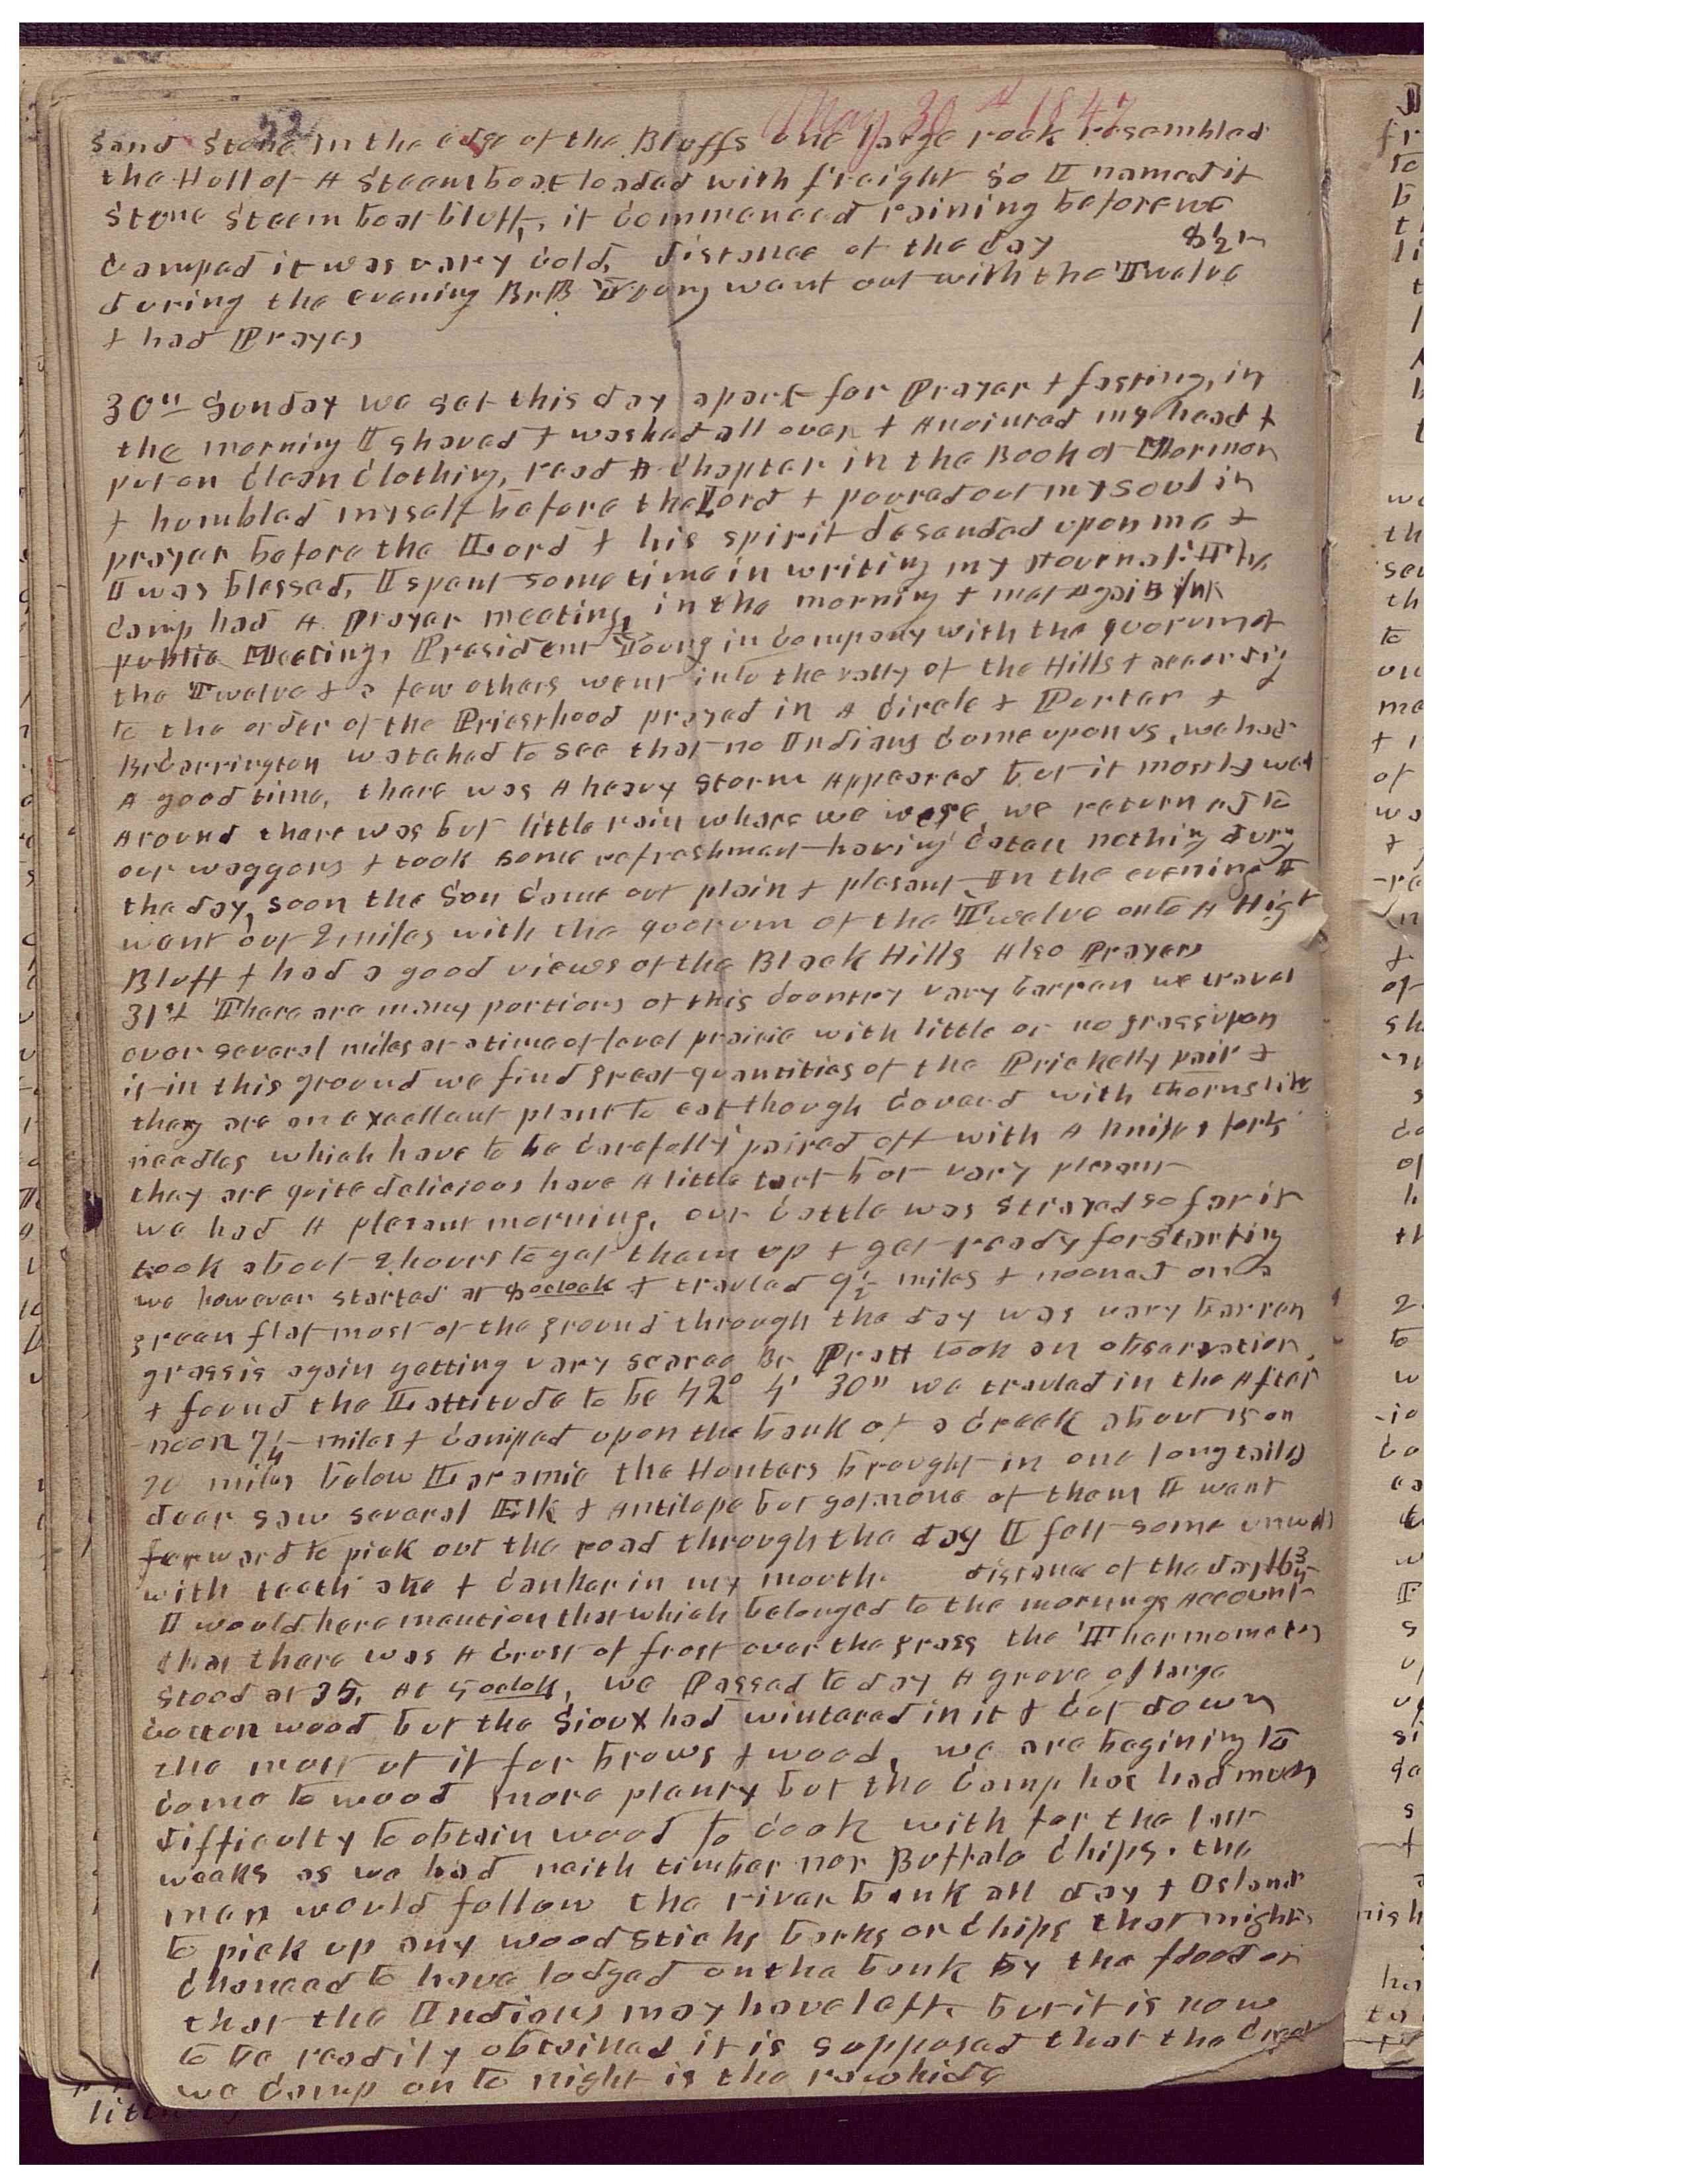 52
May 30th 1847
sand stone in the edge of the Bluffs one large rock resembled
the Hull of A Steem boat loaded with freight so I named it
stone steem boat bluff, it commenced raining before we
camped it was vary cold, distance of the day 8½ m
during the evening Br B Young went out with the Twelve
& had Prayers
30th Sunday we set this day apart for Prayer & fasting, in
the morning I shaved & washed all over & Anointed my head &
put on clean clothing, read A chapter in the Book of Mormon
& humbled myself before the Lord & poured out my soul in
prayer before the Lord & his spirit desended upon me &
I was blessed, I spent some time in writing my Journal. The
camp had A Prayer meeting, in the morning & met Again in
public Meeting, President Young in company with the quorum of
the Twelve & a few others went into the vally of the Hills & according
to the order of the Priesthood prayed in A circle & Porter &
Br Carrington watched to see that no Indians come upon us, we had
A good time, there was A heavy storm Appeared but it mostly went
Around there was but little rain whare we were we returned to
our waggons & took some refreshment having eaten nothing during
the day, soon the Sun came out plain & plesant In the evening I
went out 2 miles with the quorum of the Twelve onto A High
Bluff & had a good views of the Black Hills Also Prayers
31st There are many portions of this country vary barren we travel
over several miles at a time of level prairie with little or no grass upon
it in this ground we find great quantities of the Prickelly pair &
they are an excellent plant to eat though coverd with thorns like
needles which have to be carefully paired off with A knife & fork
they are quite delicious have A little tart but vary plesant
we had A plesant morning, our cattle was strayed so far it
took about 2 hours to get them up & get ready for starting
we however started at 8 oclock & travled 9½ miles & nooned on a
green flat most of the ground through the day was vary barren
grass is again getting vary scarce Br Pratt took an observation
& found the Lattitude to be 42° 4' 30" we travled in the After
noon 7¼ miles & camped upon the bank of a creek about 15 or
20 miles below Laramie the Hunters brought in one long tailed
deer saw several Elk & Antilope but got none of them I went
forward to pick out the road through the day I felt some unwell
with teeth ake & canker in my mouth distance of the day 16¾
I would here mention that which belonged to the mornings Account
that there was A crust of frost over the grass the Thermometer
stood at 35, At 5 oclok, we Passed to day A grove of large
cotton wood but the Sioux had wintered in it & cut down
the most of it for brows & wood, we are begining to
come to wood more plenty but the camp has had much
difficulty to obtain wood to cook with for the last
weeks as we had neith timber nor Buffalo chips. the
men would follow the river bank all day & Osland
to pick up any wood sticks barks or chips that might
chanced to have lodged on the bank by the flood or
that the Indians may have left. but it is now
to be readily obtained it is supposed that the creek
we camp on to night is the rawhide